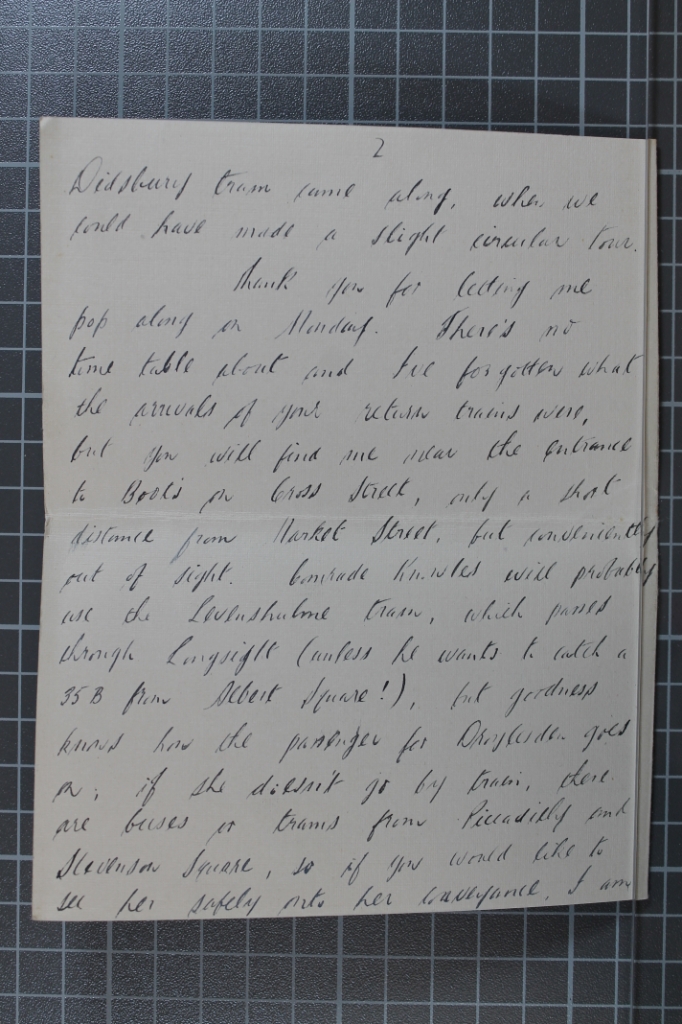 2
Didsbury tram came along, when we
could have made a slight circular tour.
Thank you for letting me
pop along on Monday. There's no
time table about and I've forgotten what
the arrivals of your return trains were,
but you will find me near the entrance
to Boots on Cross Street, only a short
distance from Market Street, but conveniently
out of sight. Comrade Knowles will probably
use the Levenshulme tram, which passes
through Longsight (unless he wants to catch a
35 B from Albert Square!), but goodness
knows how the passenger for Droylsden goes
on; if she doesn't go by train, there
are buses or trams from Piccadilly and
Stevenson Square, so if you would like to
see her safely onto her conveyance, I am